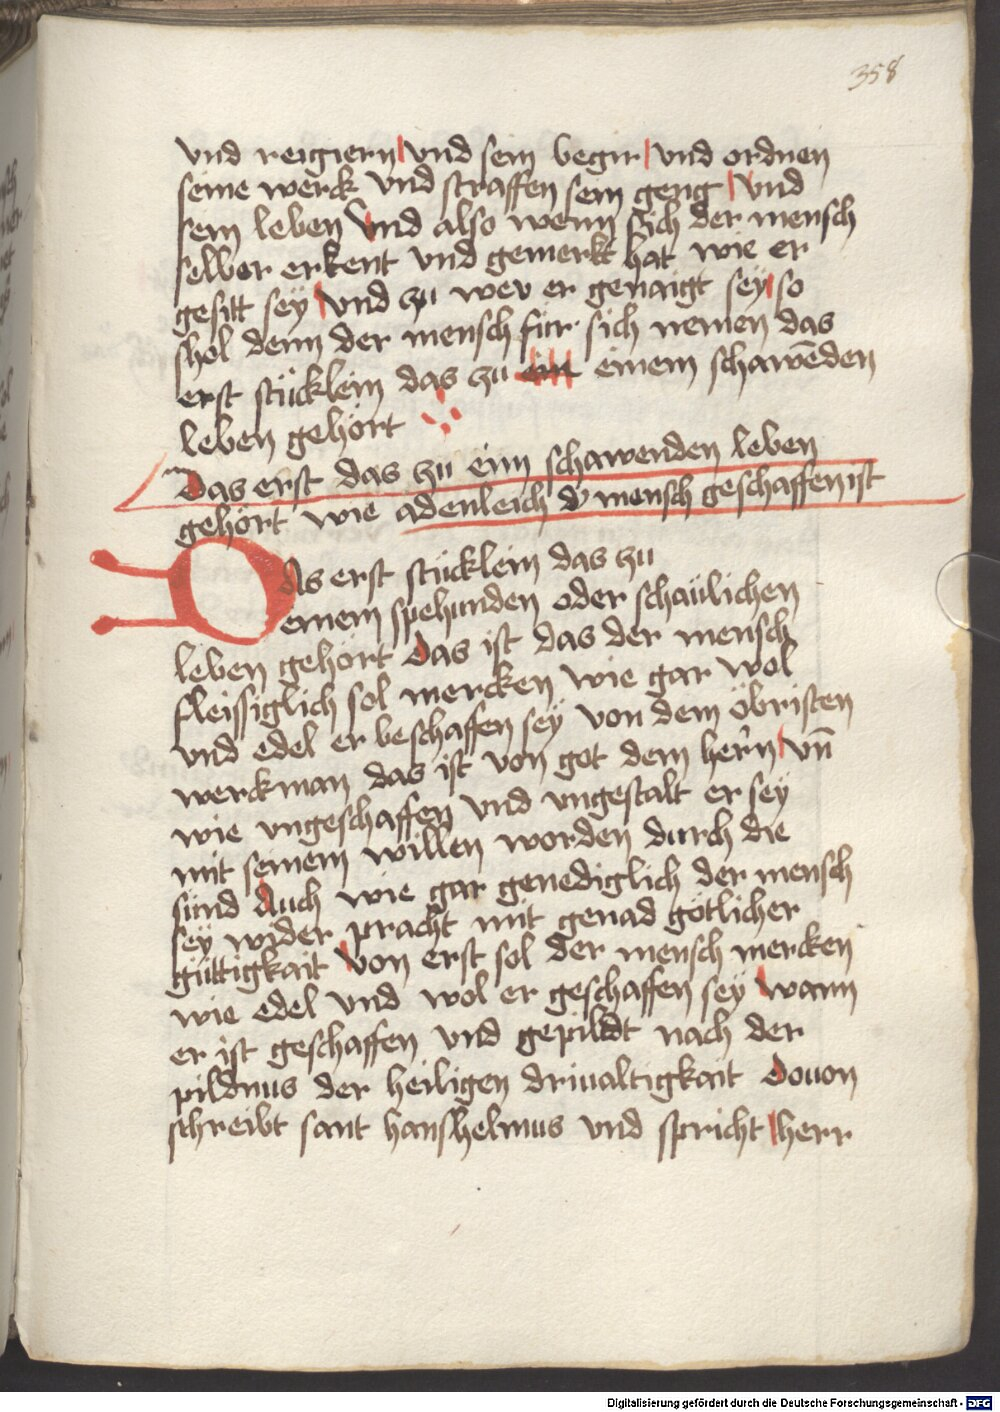 358
vnd reigiern vnd sein begir vnd ordnen
seine werck vnd straffen sein geng vnd
sein leben Vnd also wenn sich der mensch
selber erkent vnd gemerkt hat wie er
gesitt sey vnd zu wev er genaigt sey so
shol denn der mensch für sich nemen das
erst stücklein das zu ein einem schawēden
leben gehört
Das erst das zu einn schawenden leben
gehört wie adenleich d' mensch geschaffen ist
Das erst stücklein das zu
einem spehunden oder schaülichen
leben gehört Das ist das der mensch
fleissiglich sol mercken wie gar wol
vnd edel er beschaffen sey von dem öbristen
werckman das ist von got dem herrn vn̄
wie vngeschaffen vnd vngestalt er sey
mit seinem willen worden durch die
sünd Auch wie gar genediglich der mensch
sey wider pracht mit genad götlicher
güttigkait Von erst sol der mensch mercken
wie edel vnd wol er geschaffen sey wann
er ist geschaffen vnd gepildt nach der
pildnus der heiligen driualtigkait Douon
schreibt sant hanshelmus vnd spricht herr
Digitalisierung gefördert durch die Deutsche Forschungsgemeinschaft - DFG